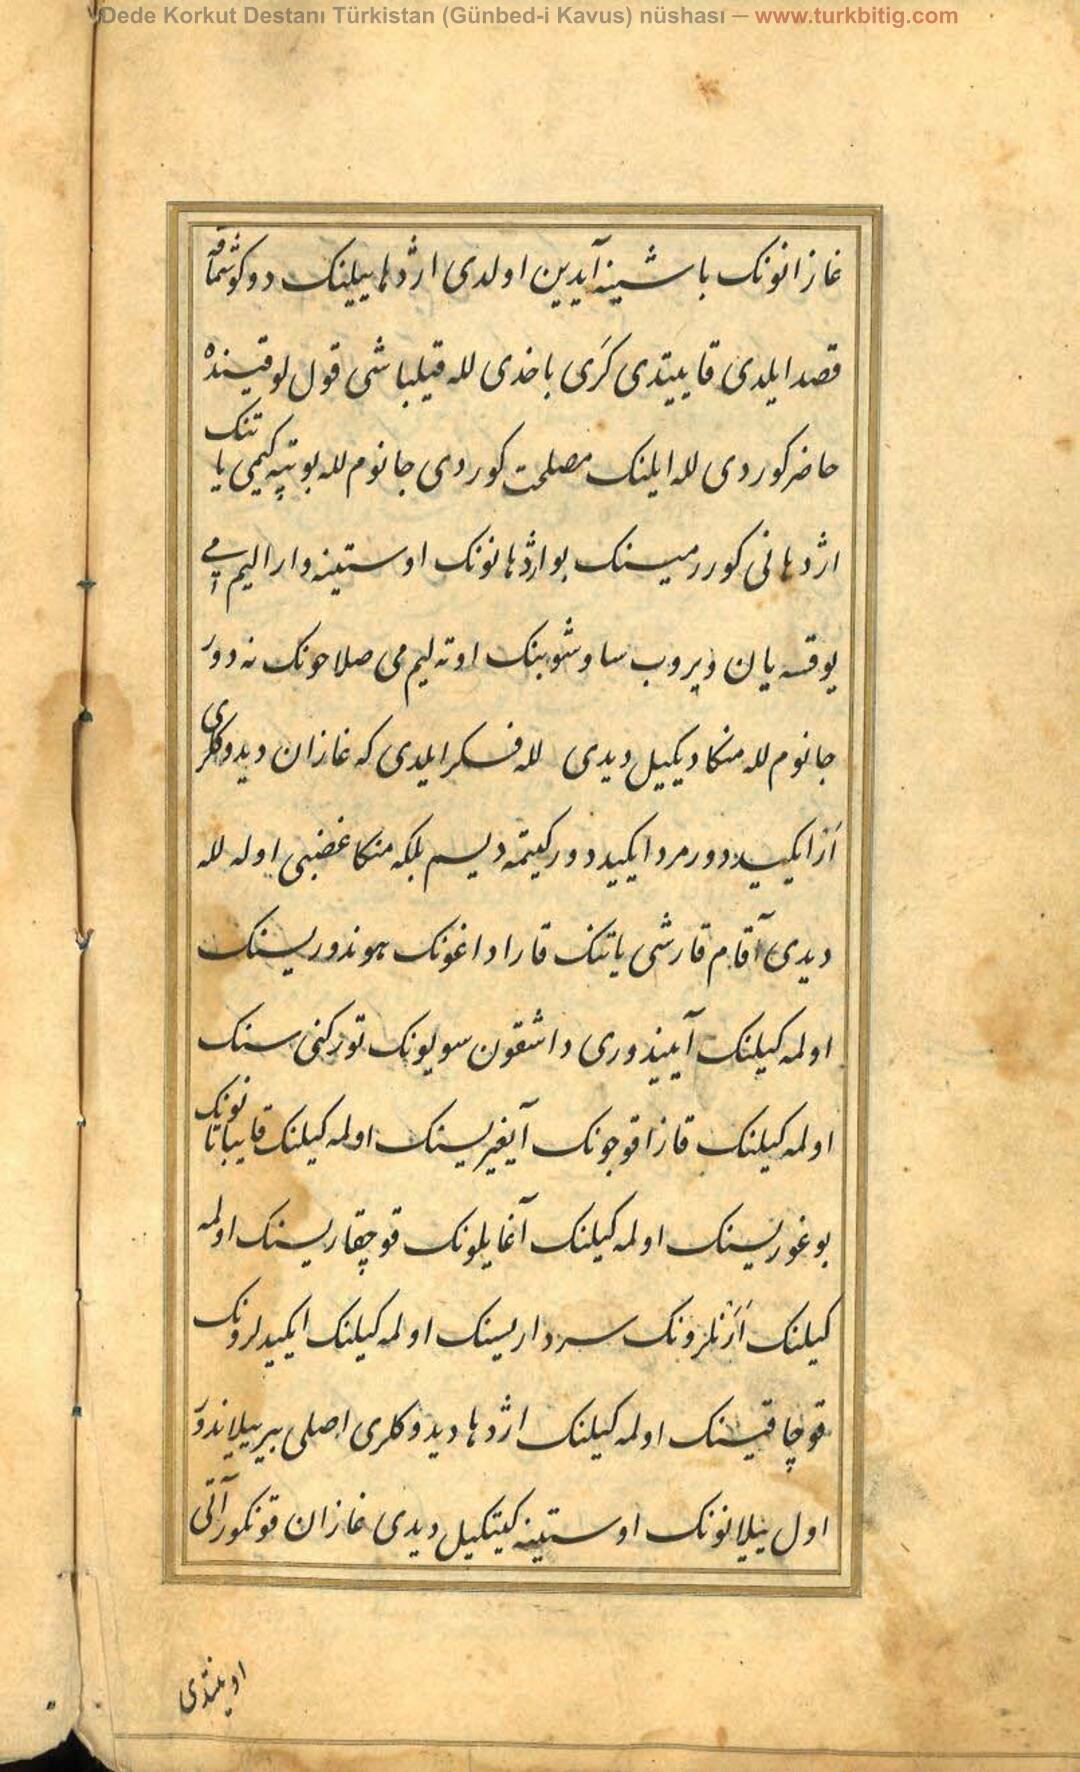 Dede Korkut Destanı Türkistan (Günbed-i Kavus) nüshası — www.turkbitig.com
غازانونک باشینه آیدین اولدی اژدها ییلینک دوکوشماقه
قصد ایلدی قاییتدی کَری باخدی لله قیلباشی قول لوقینده
حاضر کوردی لله ایلنک مصلحت کوردی جانوم لله بو تپه کیمی یاتنک
اژدهانی کوررمیسنک بو اژدهانونک اوستینه وارالیم می
یوقسه یان ویروب ساوشوبنک اوته لیم می صلاحونک نه دور
جانوم لله منکا دیکیل دیدی لله فکر ایلدی که غازان دیدوکلری
اَز ایکیددور مرد ایکیددور کیتمه دیسم بلکه منکا غضبی اوله لله
دیدی آقام قارشی یاتنک قارا داغونک هوندوریسنک
اولمه کیلنک آیینذوری داشقون سویونک تورکنی سنک
اولمه کیلنک قازاقوجونک آیغیریسنک اولمه کیلنک قایباتانونک
بوغوریسنک اولمه کیلنک آغایلونک قوچقاریسنک اولمه
کیلنک اَرَنلرونک سرداریسنک اولمه کیلنک ایکیدلرونک
قوچاقیسنک اولمه کیلنک اژدها دیدوکلری اصلی بیر ییلاندور
اول ییلانونک اوستینه کیتکیل دیدی غازان قونکور آتی